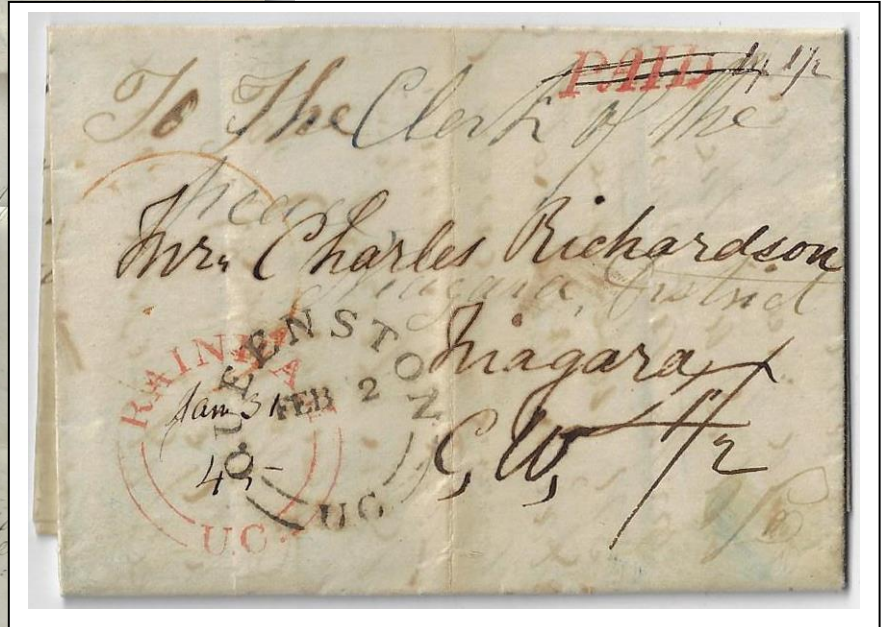 PAID 4 1/2
To The Clerk of the
Peace
Mr. Charles Richardson
Niagara, District
Niagara
C, W, 4/2
RAINHAM
Jan 31
45
U.C.
QUEENSTON
FEB 2
U.C